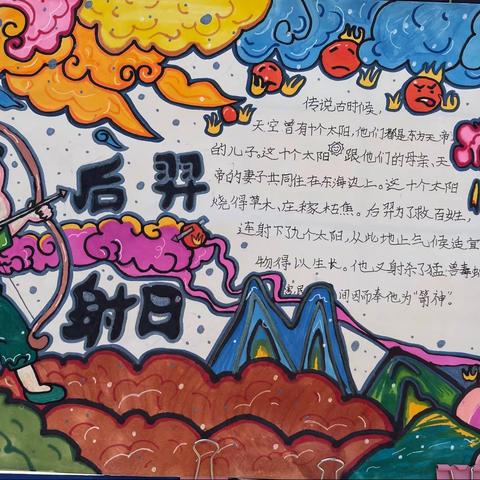 后羿
射日
传说古时候，
天空曾有十个太阳，他们都是东方天帝
的儿子。这十个太阳跟他们的母亲、天
帝的妻子共同住在东海边上。这十个太阳
烧得草木、庄稼枯焦。后羿为了救百姓，
连射下九个太阳，从此地上气候适宜
物得以生长。他又射杀了猛兽毒蛇
民间因而奉他为“箭神”。